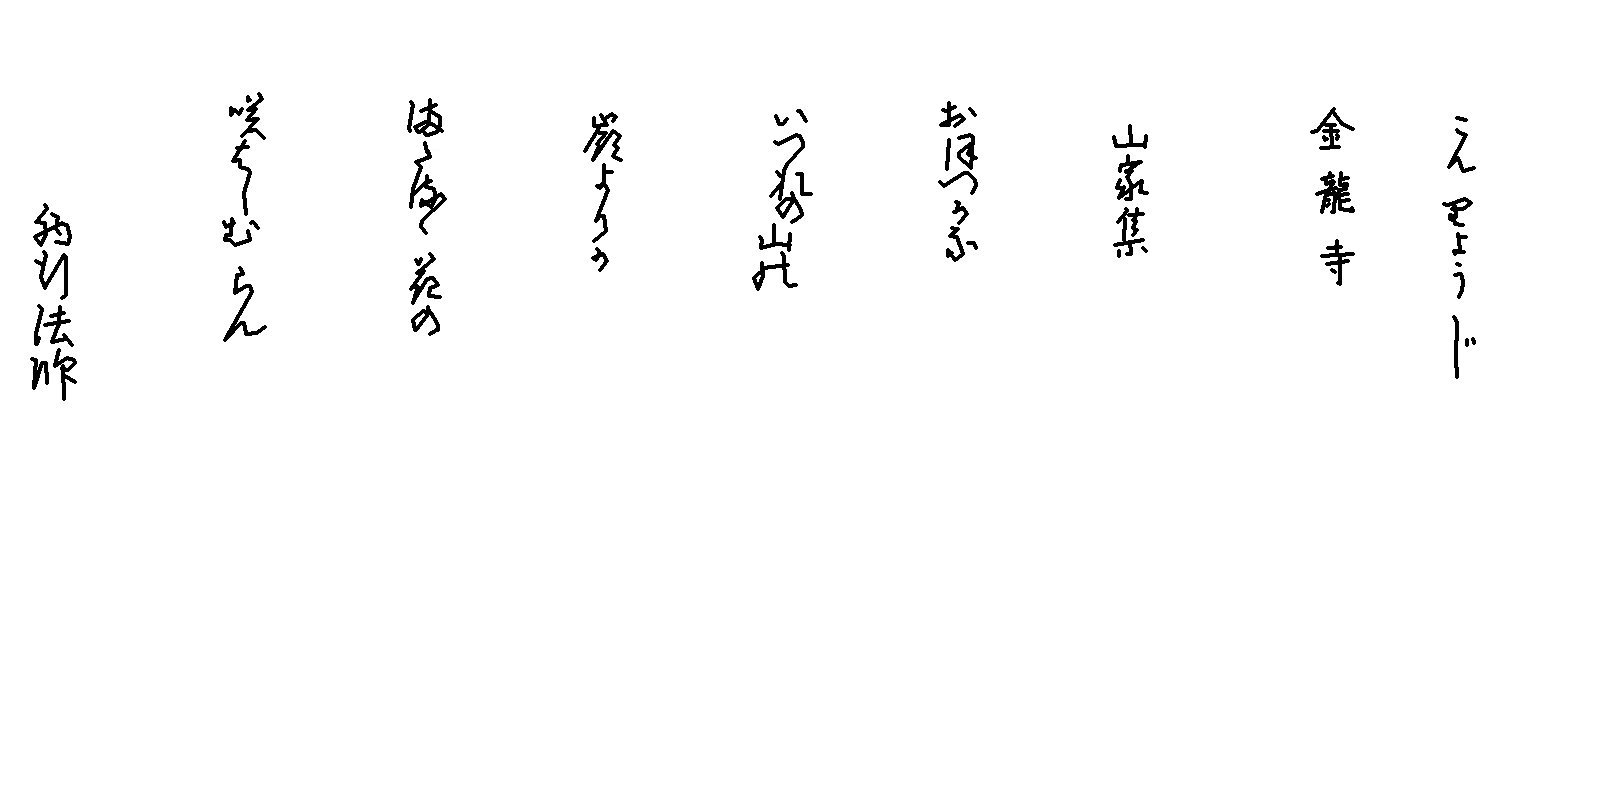 こんりようじ
金龍寺
山家集
おほつかな
いつれの山の
嶺よりか
またるゝ花の
咲はしむらん
法師